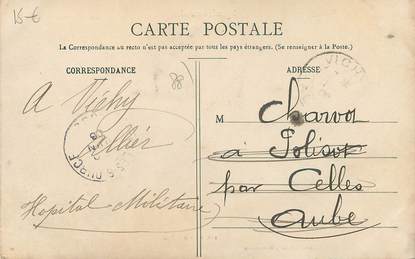 15-€
CARTE POSTALE
La Correspondance au recto n'est pas acceptée par tous les pays étrangers. (Se renseigner à la Poste.)
CORRESPONDANCE
ADRESSE
88
VICHY
A Vichy
Allier
Hopital Militaire
M Charvot
à Polisot
par Celles
Aube